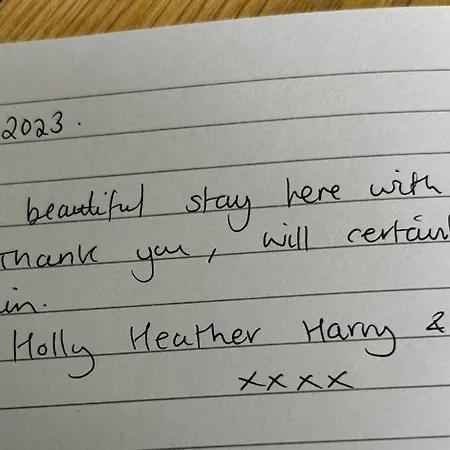 2023.
beautiful stay here with
Thank you, will certainl
in.
Holly Heather Harry &
xxxx